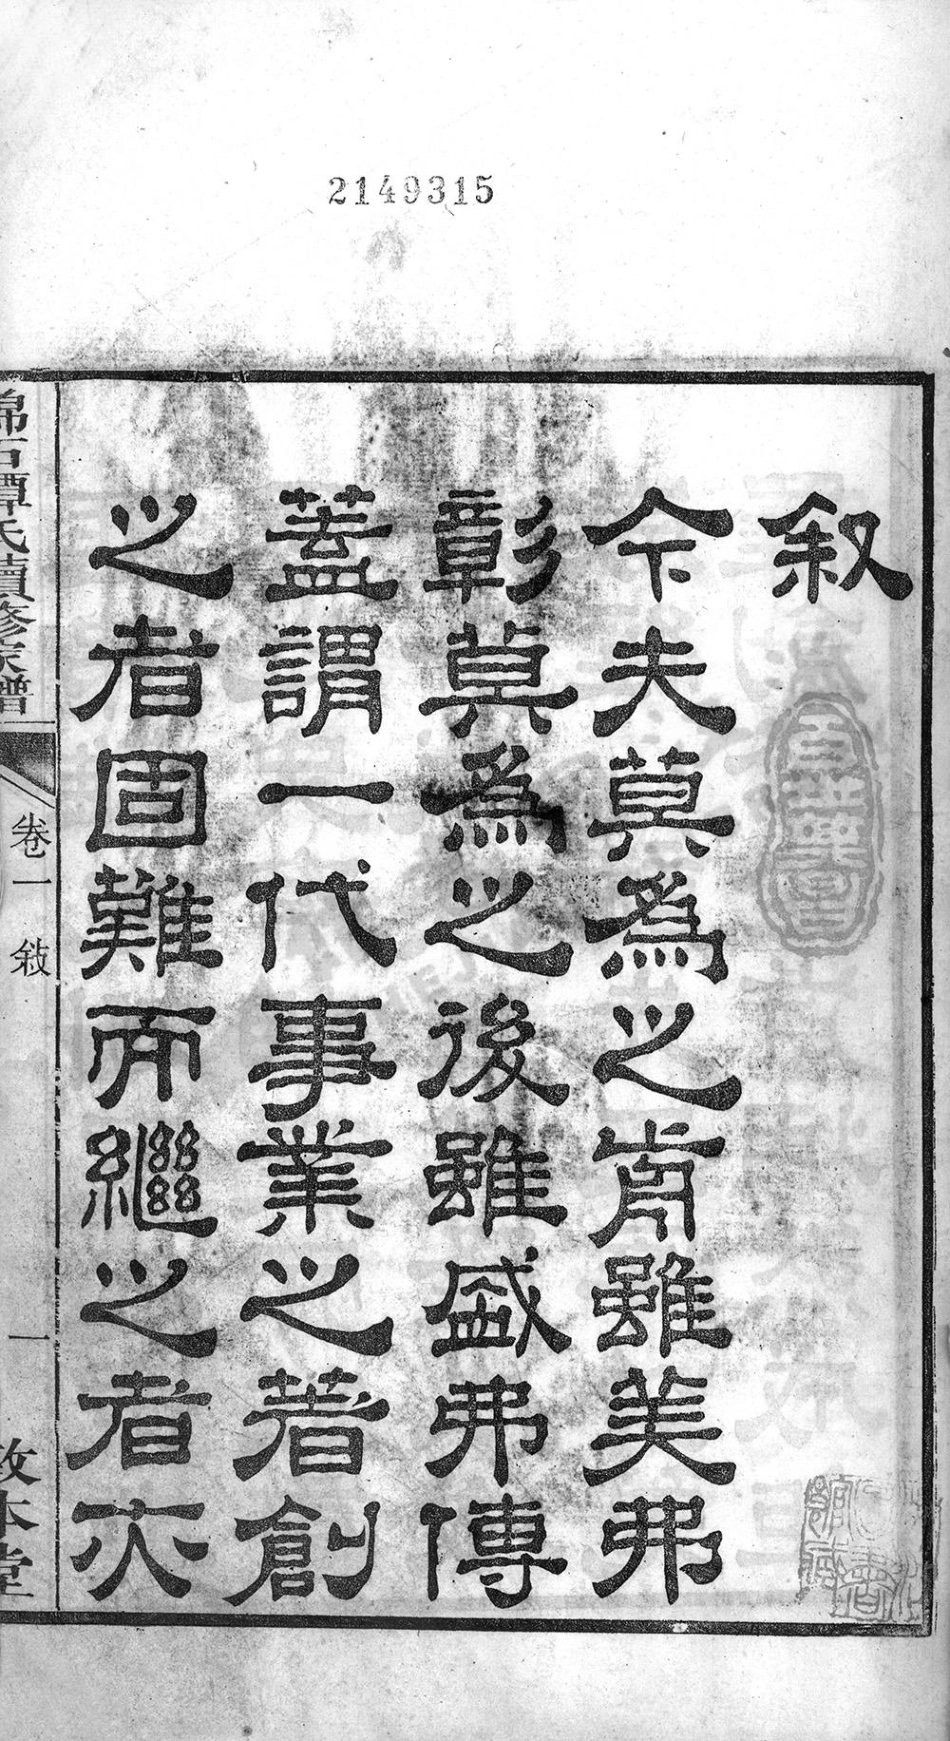 2149315
叙
今夫莫爲之前雖美弗
彰莫爲之後雖盛弗傳
蓋謂一代事業之著創
之者固難而繼之者亦
錦石譚氏續修家譜
卷一 敍
一
敦本堂